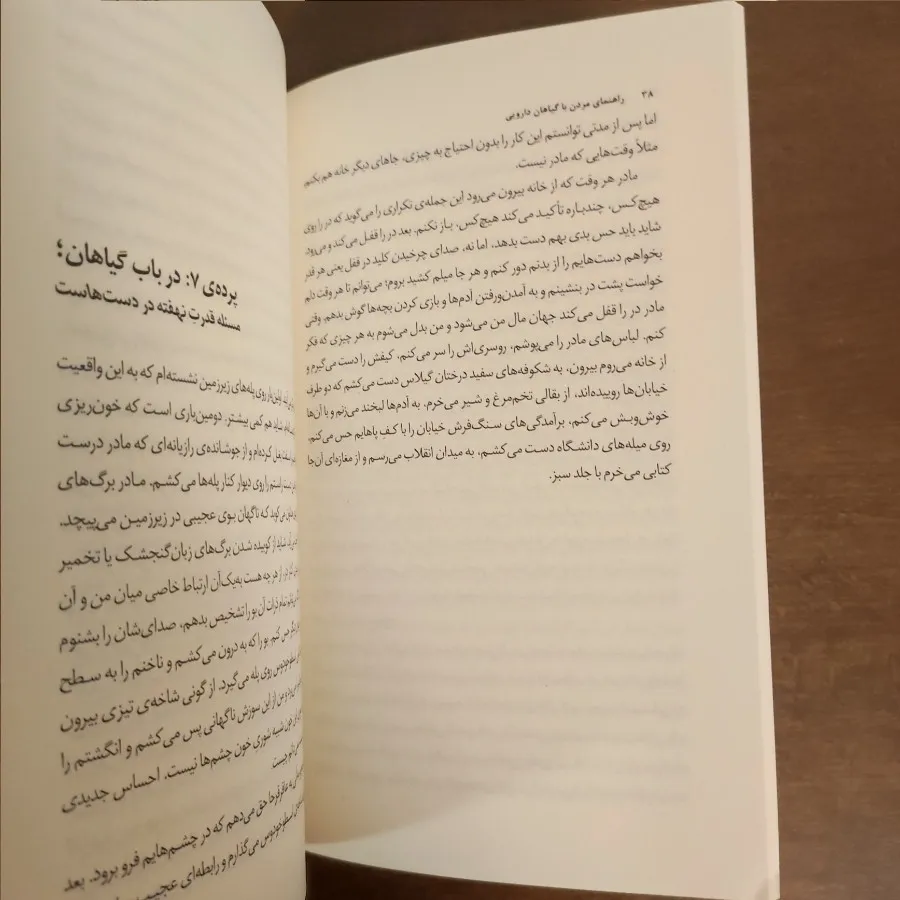 ۳۸ راهنمای مردن با گیاهان دارویی
اما پس از مدتی توانستم این کار را بدون احتیاج به چیزی، جاهای دیگر خانه هم بکنم
مثلاً وقت‌هایی که مادر نیست.
مادر هر وقت که از خانه بیرون می‌رود این جمله‌ی تکراری را می‌گوید که در را روی
هیچ‌کس، چندباره تأکید می‌کند هیچ‌کس، باز نکنم. بعد در را قفل می‌کند و می‌رود.
شاید باید حس بدی بهم دست بدهد، اما نه، صدای چرخیدن کلید در قفل یعنی هر قدر
بخواهم دست‌هایم را از بدنم دور کنم و هر جا میلم کشید بروم؛ می‌توانم تا هر وقت دلم
خواست پشت در بنشینم و به آمدن‌ورفتن آدم‌ها و بازی کردن بچه‌ها گوش بدهم. وقتی
مادر در را قفل می‌کند جهان مال من می‌شود و من بدل می‌شوم به هر چیزی که فکر
کنم. لباس‌های مادر را می‌پوشم، روسری‌اش را سر می‌کنم، کیفش را دست می‌گیرم و
از خانه می‌روم بیرون، به شکوفه‌های سفید درختان گیلاس دست می‌کشم که دو طرف
خیابان‌ها روییده‌اند، از بقالی تخم‌مرغ و شیر می‌خرم. به آدم‌ها لبخند می‌زنم و با آن‌ها
خوش‌وبش می‌کنم، برآمدگی‌های سنگ‌فرش خیابان را با کف پاهایم حس می‌کنم،
روی میله‌های دانشگاه دست می‌کشم، به میدان انقلاب می‌رسم و از مغازه‌ای آن‌جا
کتابی می‌خرم با جلد سبز.
پرده‌ی ۷: در باب گیاهان؛
مسئله قدرتِ نهفته در دست‌هاست
اولین‌بار روی پله‌های زیرزمین نشسته‌ام که به این واقعیت
شاید هم کمی پیشتر. دومین‌باری است که خون‌ریزی
کرده‌ام و از جوشانده‌ی رازیانه‌ای که مادر درست
دست راستم را روی دیوار کنار پله‌ها می‌کشم. مادر برگ‌های
می‌کوبد که ناگهان بوی عجیبی در زیرزمین می‌پیچد.
شاید از کوبیده شدن برگ‌های زبان‌گنجشک یا تخمیر
از هر چه هست به‌یک‌آن ارتباط خاصی میان من و آن
تمام ذرات آن بو را تشخیص بدهم، صدای‌شان را بشنوم
حس کنم. بو را که به درون می‌کشم و ناخنم را به سطح
روی پله می‌گیرد. از گونی شاخه‌ی تیزی بیرون
و من از این سوزش ناگهانی پس می‌کشم و انگشتم را
خون شبیه شوری خون چشم‌ها نیست. احساس جدیدی
چیست.
به عاقرقرحا حق می‌دهم که در چشم‌هایم فرو برود. بعد
اسطوخودوس می‌گذارم و رابطه‌ای